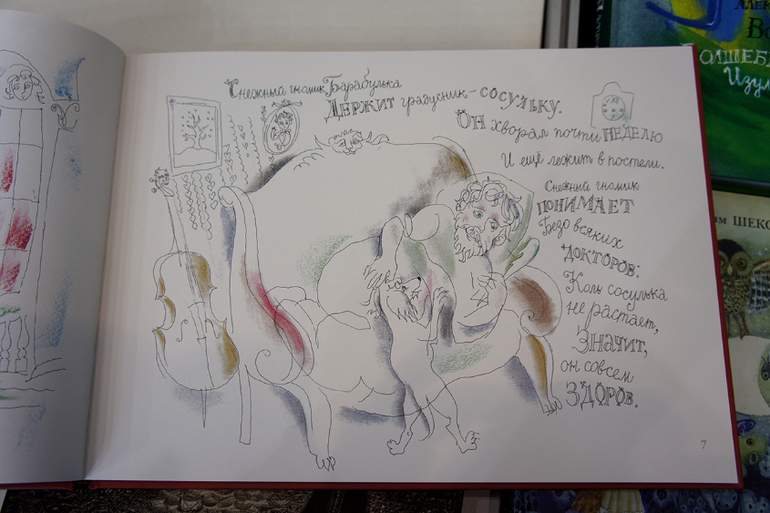 Снежный гномик Барабулька
ДЕРЖИТ градусник-СОСУЛЬКУ.
ОН хворал почти НЕДЕЛЮ
И ещё лежит в постели.
Снежный гномик
ПОНИМАЕТ
Безо всяких
ДОКТОРОВ:
Коль сосулька
не растает,
ЗНАЧИТ,
он совсем
ЗДОРОВ.
7
АЛЕК
ВО
ОЛШЕБ
Изу
им ШЕКС